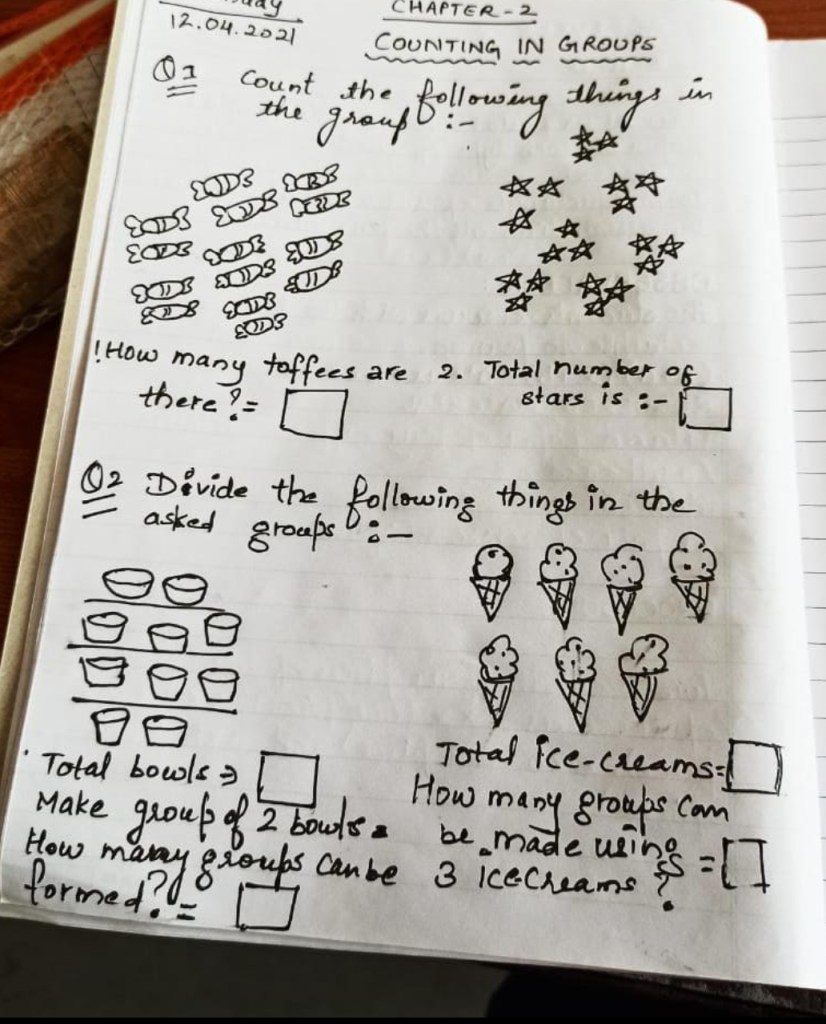 12.04.2021
CHAPTER-2
COUNTING IN GROUPS
Q1 Count the following things in
the group :-
1 How many toffees are
there? =
2. Total number of
stars is :-
Q2 Divide the following things in the
asked groups :-
Total bowls ⇒
Make group of 2 bowls.
How many groups can be
formed? =
Total ice-creams =
How many groups can
be made using =
3 icecreams ?